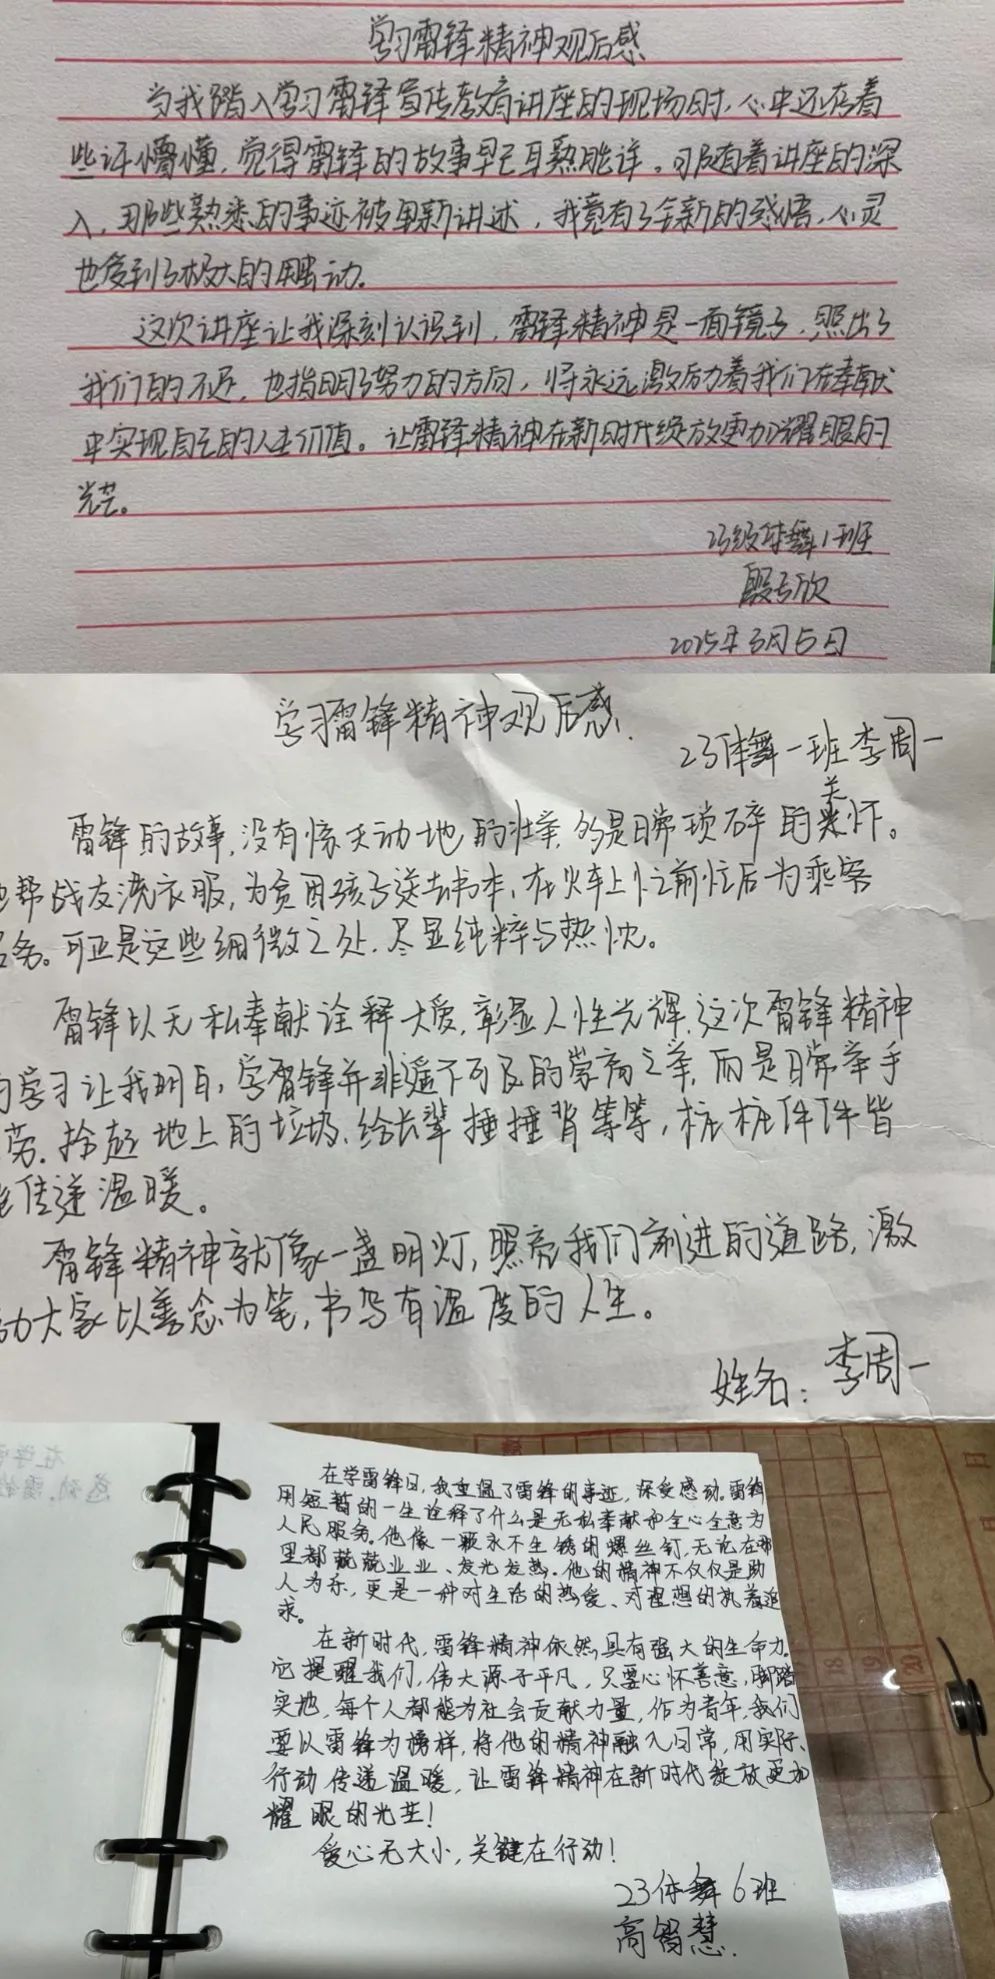 学习雷锋精神观后感
当我踏入学习雷锋宣传教育讲座的现场时,心中还存着
些许懵懂,觉得雷锋的故事早已耳熟能详。可随着讲座的深
入,那些熟悉的事迹被重新讲述,我竟有了全新的感悟,心灵
也受到了极大的触动。
这次讲座让我深刻认识到,雷锋精神是一面镜子,照出了
我们的不足,也指明了努力的方向,将永远激励着我们在奉献
中实现自己的人生价值。让雷锋精神在新时代绽放更加耀眼的
光芒。
23级体舞1班
殷欣
2025年3月5日
学习雷锋精神观后感.
23体舞一班李周一
雷锋的故事,没有惊天动地的壮举,多是日常琐碎的关怀。
他帮战友洗衣服,为贫困孩子送去书本,在火车上忙前忙后为乘客
服务。可正是这些细微之处,尽显纯粹与热忱。
雷锋以无私奉献诠释大爱,彰显人性光辉,这次雷锋精神
的学习让我明白,学雷锋并非遥不可及的崇高之举,而是日常举手
之劳.拾起地上的垃圾、给长辈捶捶背等等,桩桩件件皆
能传递温暖。
雷锋精神就像一盏明灯,照亮我们前进的道路,激
励大家以善念为笔,书写有温度的人生。
姓名:李周一
在学雷锋日,我重温了雷锋的事迹,深受感动。雷锋
用短暂的一生诠释了什么是无私奉献和全心全意为
人民服务。他像一颗永不生锈的螺丝钉,无论在哪
里都兢兢业业、发光发热。他的精神不仅仅是助
人为乐,更是一种对生活的热爱、对理想的执着追
求。
在新时代,雷锋精神依然具有强大的生命力。
它提醒我们,伟大源于平凡,只要心怀善意,脚踏
实地,每个人都能为社会贡献力量,作为青年,我们
要以雷锋为榜样,将他的精神融入日常,用实际
行动传递温暖,让雷锋精神在新时代绽放更加
耀眼的光芒!
爱心无大小,关键在行动!
23体舞6班
高智慧.